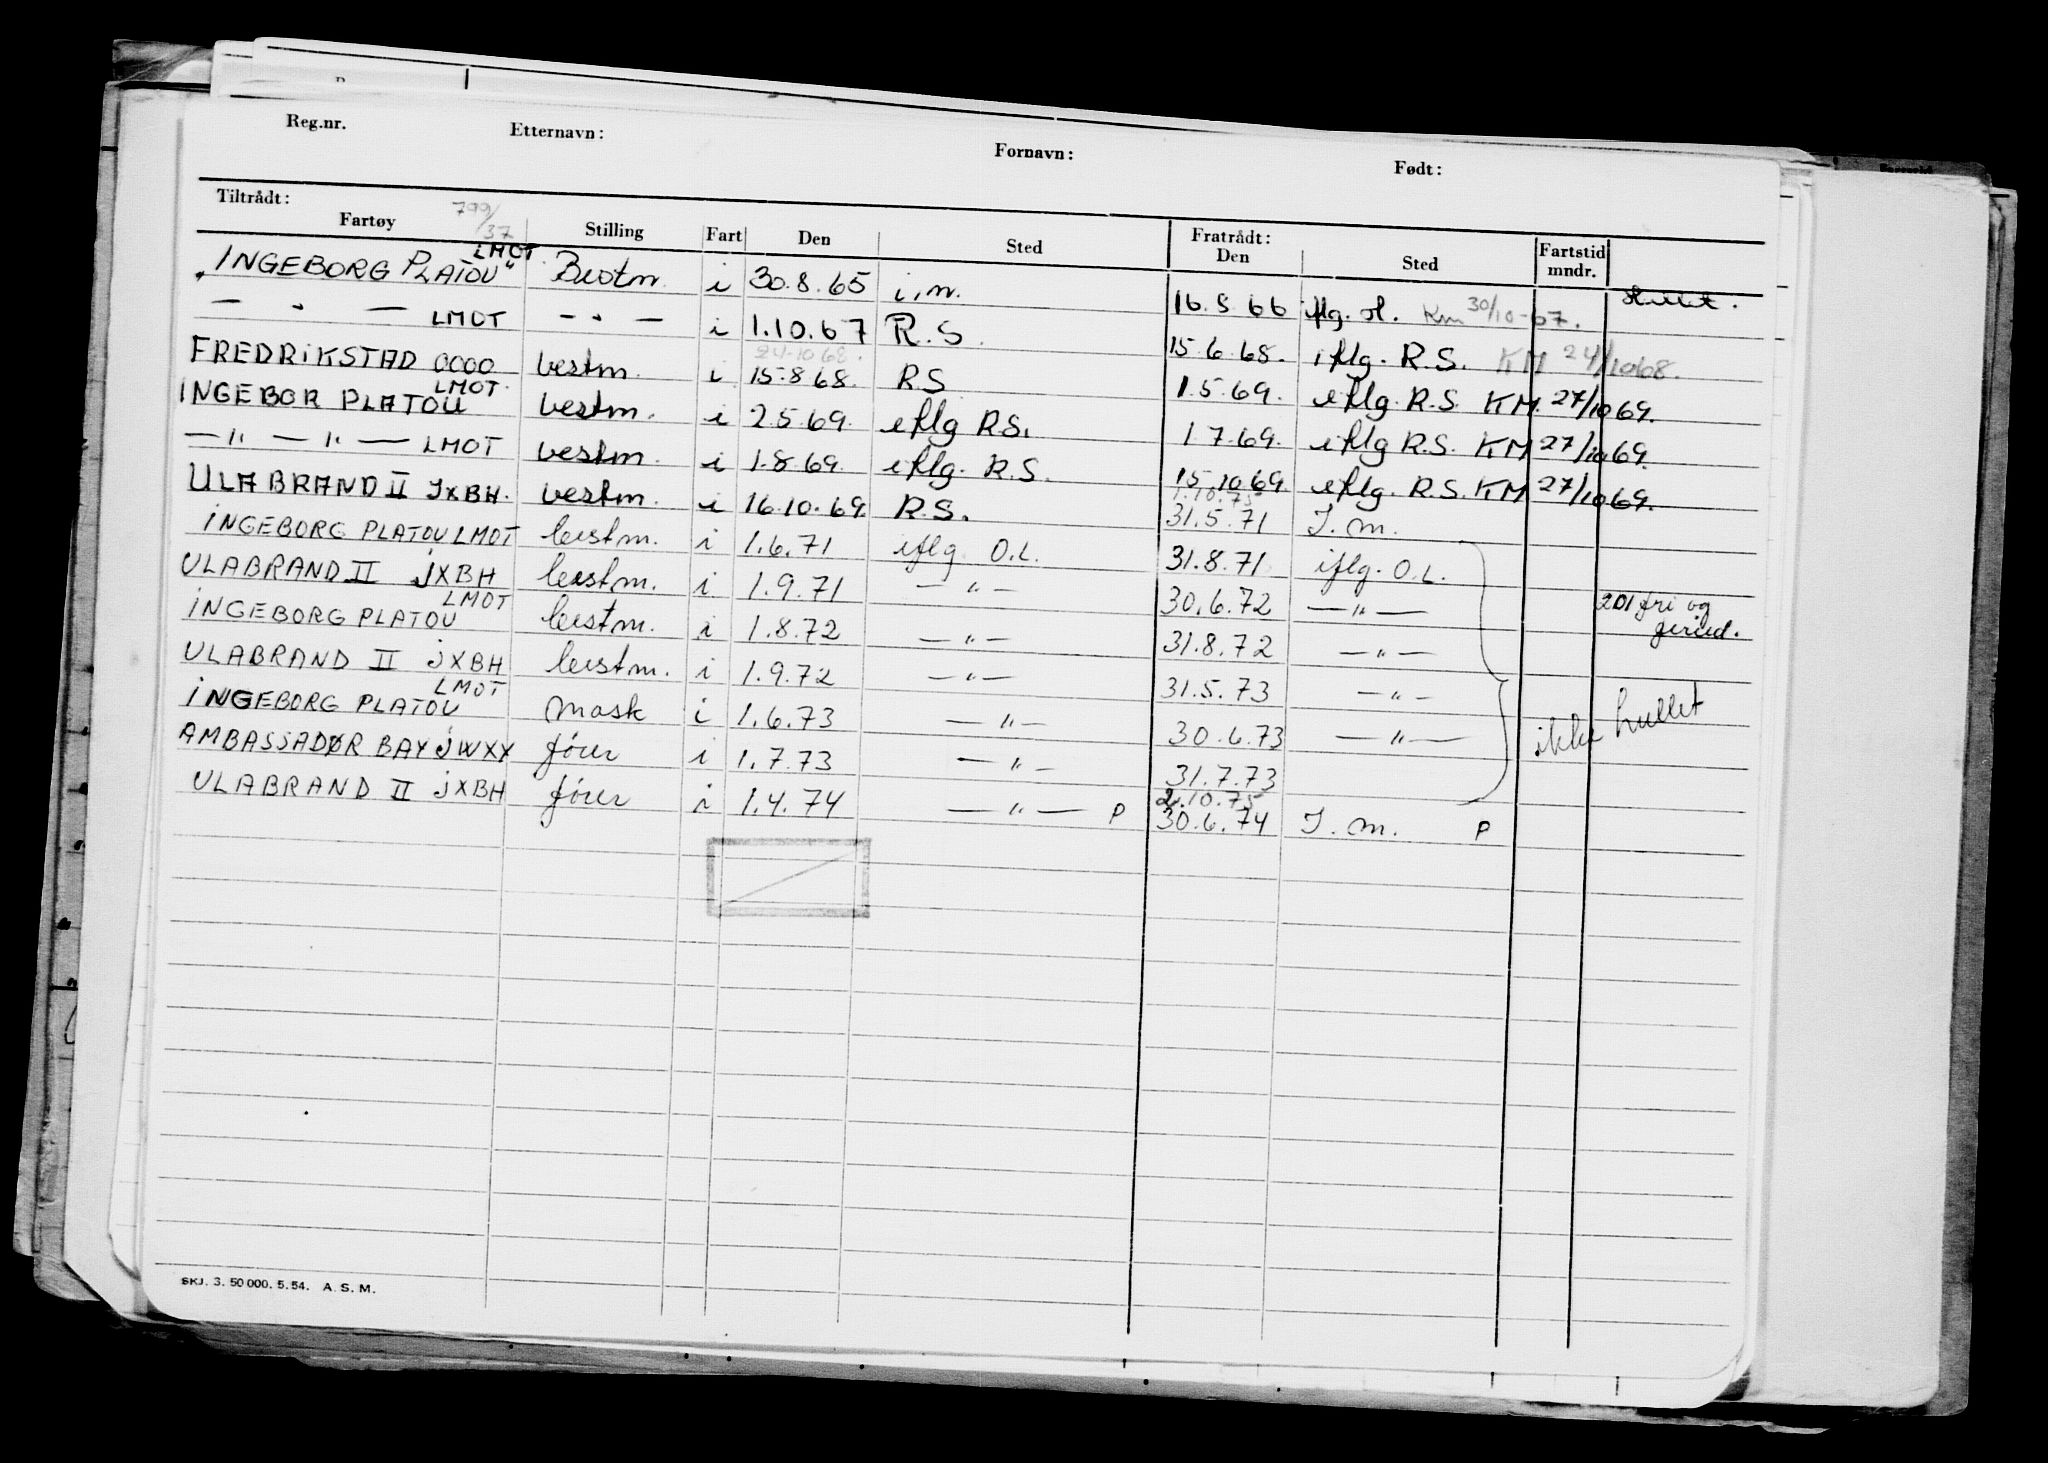 Reg.nr. Etternavn: Fornavn: Født:
Tiltrådt: Fratrådt:
Fartøy 799/37 Stilling Fart Den Sted Den Sted Fartstid mndr.
"INGEBORG PLATOU" LMOT Bestm. i 30.8.65 i.m. 16.8.66 iflg. Km 30/10-67.
— " — LMOT — " — i 1.10.67 R.S. 15.6.68. iflg. R.S. KM 24/10 68.
24-10 68.
FREDRIKSTAD OOOO bestm. i 15.8 68. RS 1.5.69. iflg. R.S. KM. 27/10 69.
INGEBOR PLATOU LMOT. bestm. i 2.5.69. iflg R.S. 1.7.69. iflg R.S. KM 27/10 69.
— " — " — LMOT bestm. i 1.8.69. iflg. R.S. 15.10.69. iflg. R.S. KM 27/10 69.
1.10.75
ULABRAND II JXBH. bestm. i 16.10.69. R.S. 31.5.71 I.m.
INGEBORG PLATOU LMOT bestm. i 1.6.71 iflg. O.L. 31.8.71 iflg. O.L.
ULABRAND II JXBH bestm. i 1.9.71 — " — 30.6.72 — " — 201 fri og
INGEBORG PLATOU LMOT bestm. i 1.8.72 — " — 31.8.72 — " —
ULABRAND II JXBH bestm. i 1.9.72 — " — 31.5.73 — " —
INGEBORG PLATOU LMOT mask i 1.6.73 — " — 30.6.73 — " — ikke hullet
AMBASSADØR BAY JWXY fører i 1.7.73 — " — 31.7.73
2.10.75
ULABRAND II JXBH fører i 1.4.74 — " — P 30.6.74 I.m. P
SKJ. 3. 50 000. 5.54. A.S.M.